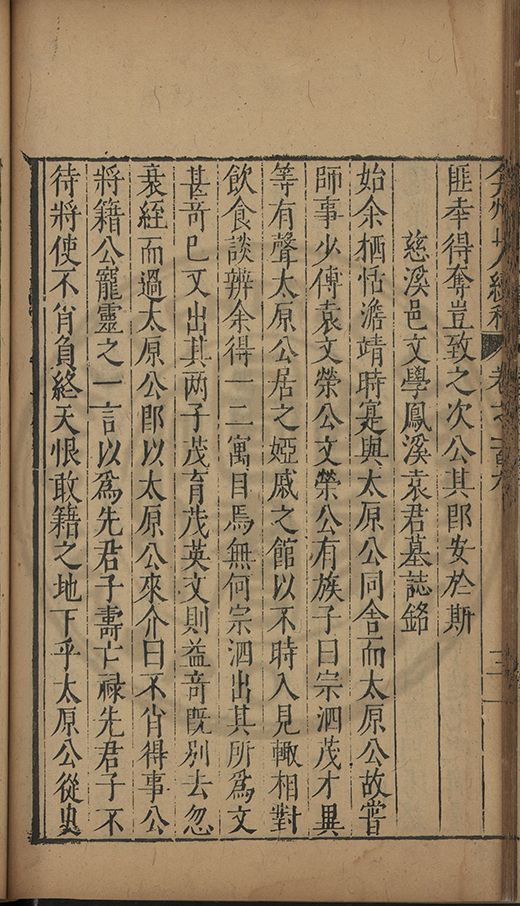 弇州山人續稿 卷之一百九 三
匪幸得奪豈致之次公其即安於斯
慈溪邑文學鳳溪袁君墓誌銘
始余栖恬澹靖時寔與太原公同舍而太原公故嘗
師事少傅袁文榮公文榮公有族子曰宗泗茂才異
等有聲太原公居之婭戚之館以不時入見輙相對
飲食談辨余得一二寓目焉無何宗泗出其所爲文
甚奇已又出其两子茂育茂英文則益奇既別去忽
衰絰而過太原公即以太原公來介曰不肖得事公
將籍公寵靈之一言以爲先君子壽亡祿先君子不
待將使不肖負終天恨敢籍之地下乎太原公從臾